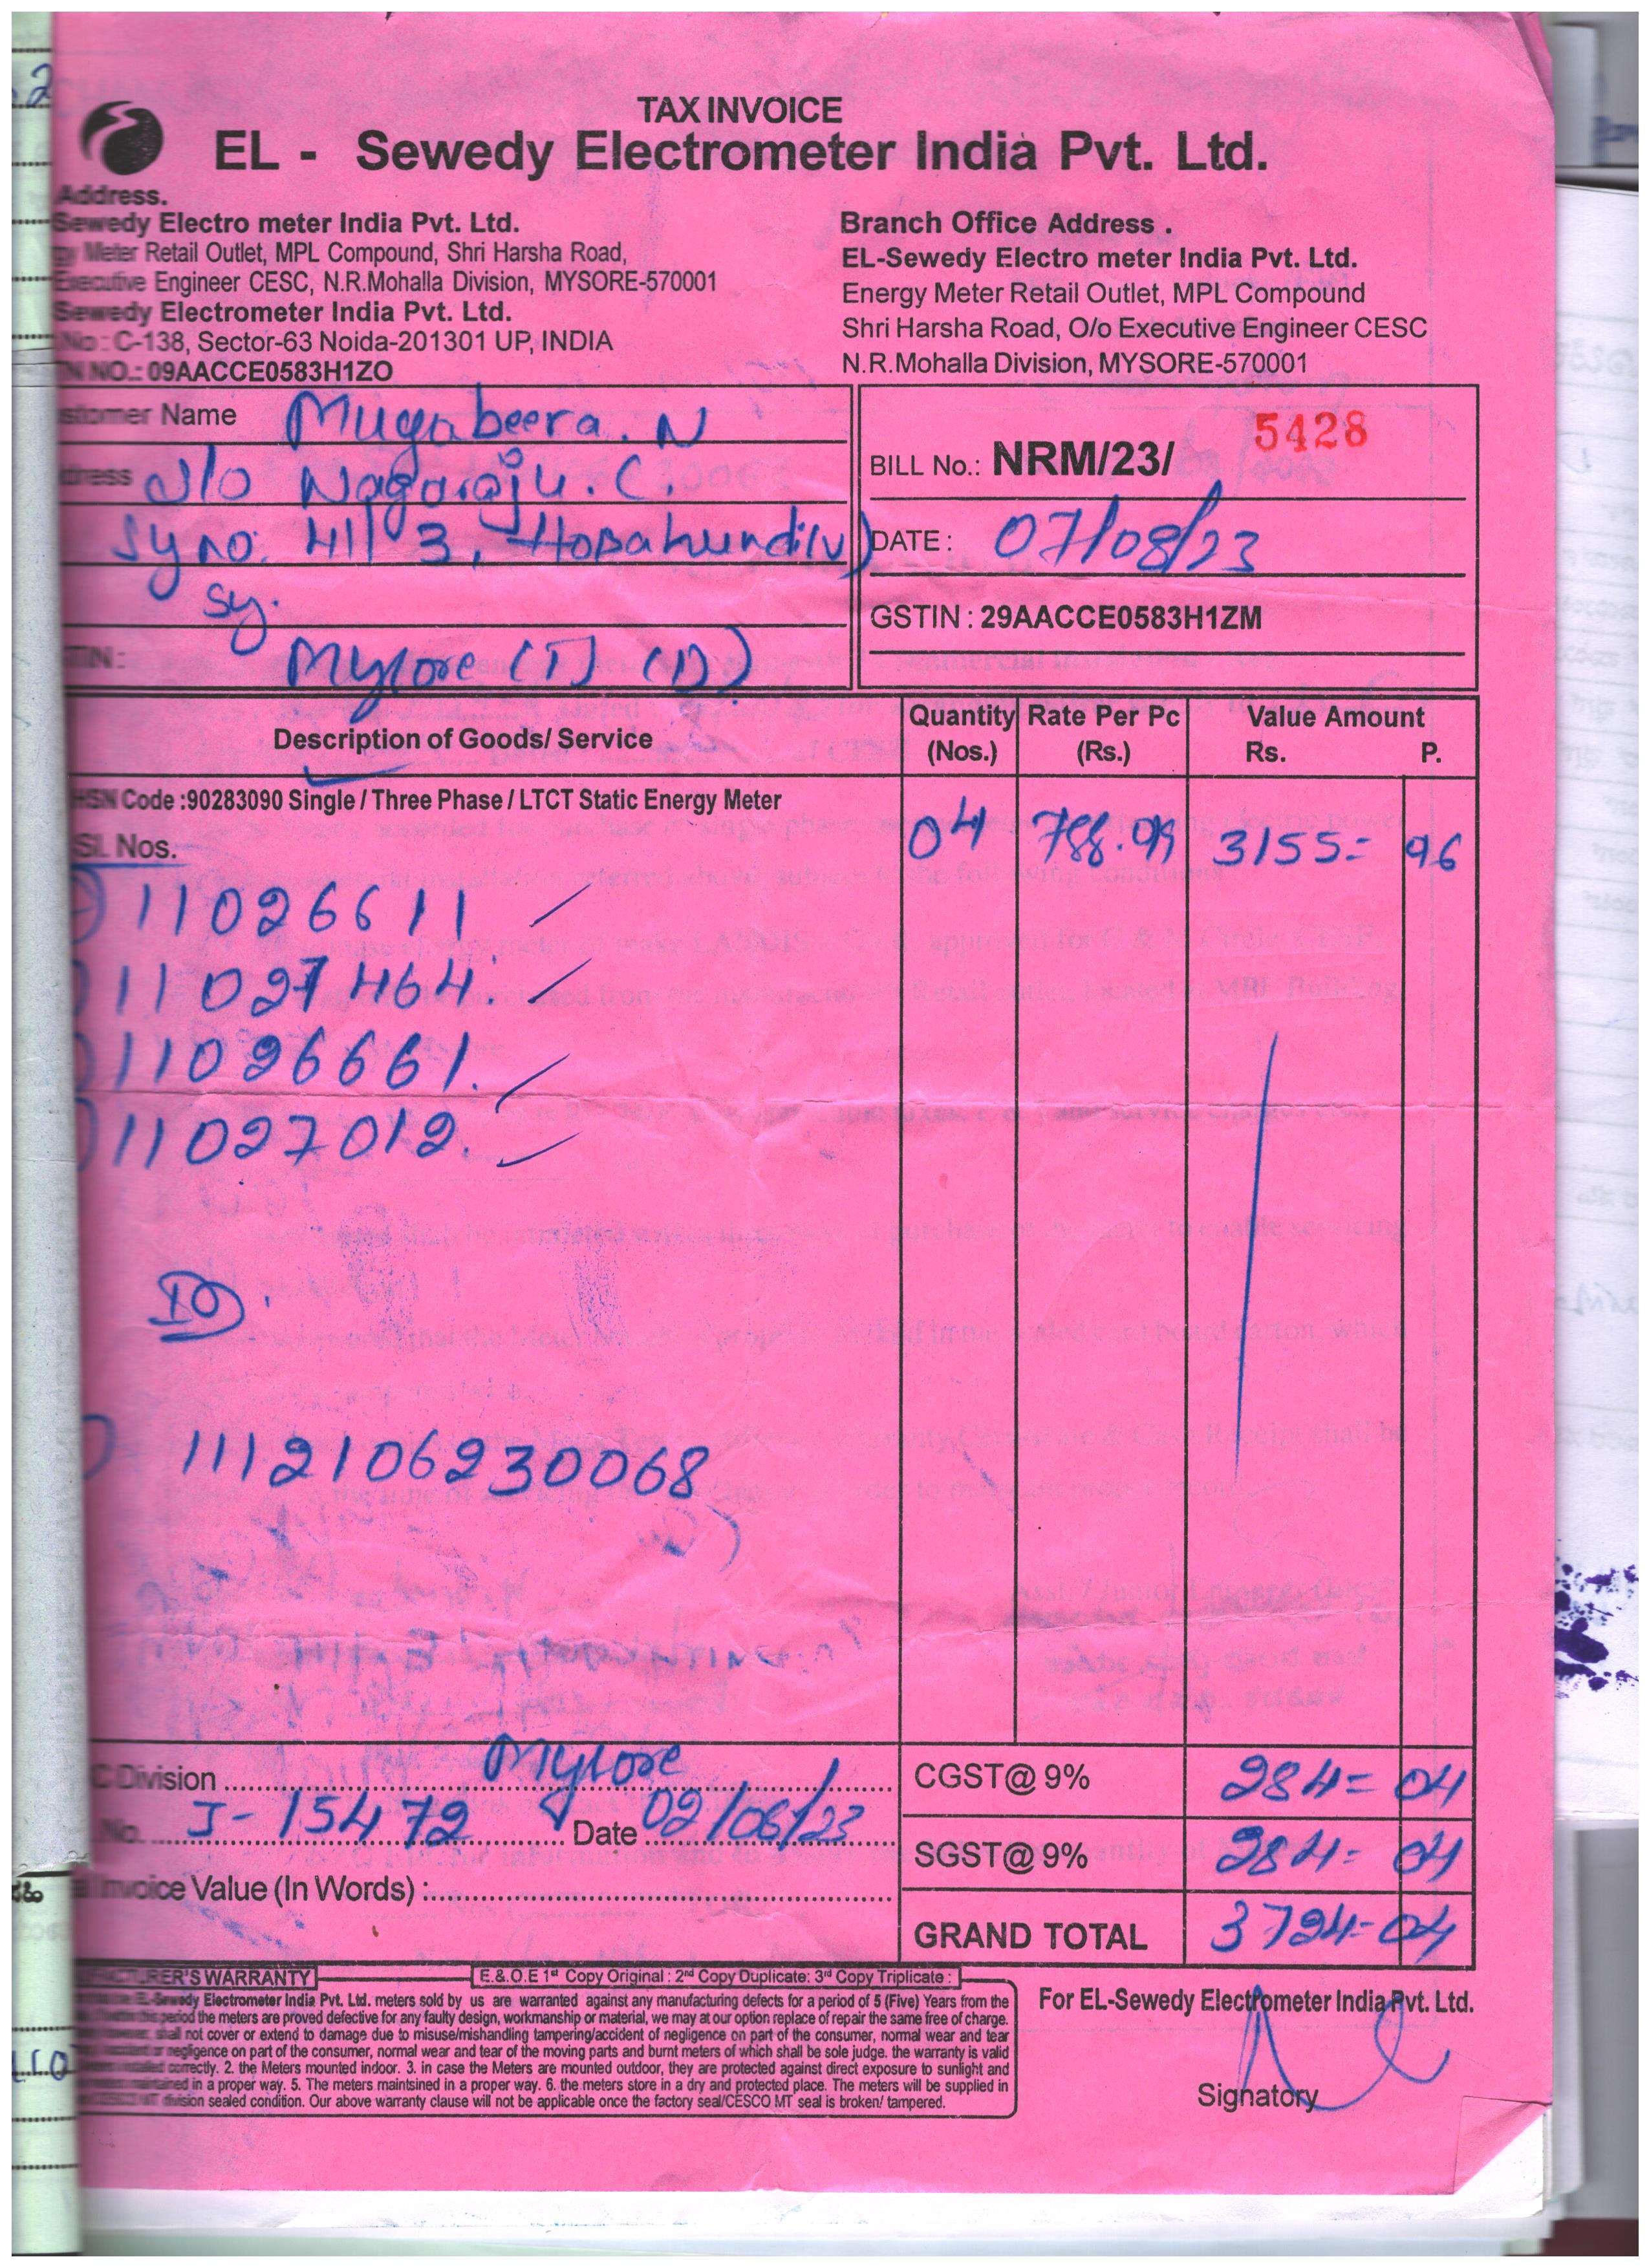 TAX INVOICE
EL - Sewedy Electrometer India Pvt. Ltd.
Address.
Sewedy Electro meter India Pvt. Ltd.
Meter Retail Outlet, MPL Compound, Shri Harsha Road,
Executive Engineer CESC, N.R.Mohalla Division, MYSORE-570001
Sewedy Electrometer India Pvt. Ltd.
No : C-138, Sector-63 Noida-201301 UP, INDIA
NO.: 09AACCE0583H1ZO
Branch Office Address .
EL-Sewedy Electro meter India Pvt. Ltd.
Energy Meter Retail Outlet, MPL Compound
Shri Harsha Road, O/o Executive Engineer CESC
N.R.Mohalla Division, MYSORE-570001
stomer Name Mugabeera. N
dress S/o Nagaraju. C.
Sy no. 41/3, Hosahundi(v)
Sy.
TIN : Mysore (T) (D)
BILL No.: NRM/23/ 5428
DATE : 07/08/23
GSTIN : 29AACCE0583H1ZM
Description of Goods/ Service Quantity (Nos.) Rate Per Pc (Rs.) Value Amount Rs. P.
HSN Code :90283090 Single / Three Phase / LTCT Static Energy Meter
Sl. Nos. 04 788.99 3155= 96
11026611
11027464.
11026661.
11027012.
ID
11121062 30068
C Division Mysore
No. J-15472 Date 02/06/23
Invoice Value (In Words) :
CGST@ 9% 284= 04
SGST@ 9% 284= 04
GRAND TOTAL 3724= 04
FACTURER'S WARRANTY E.& O.E 1st Copy Original : 2nd Copy Duplicate: 3rd Copy Triplicate :
EL-Sewedy Electrometer India Pvt. Ltd. meters sold by us are warranted against any manufacturing defects for a period of 5 (Five) Years from the
period the meters are proved defective for any faulty design, workmanship or material, we may at our option replace of repair the same free of charge.
shall not cover or extend to damage due to misuse/mishandling tampering/accident of negligence on part of the consumer, normal wear and tear
or negligence on part of the consumer, normal wear and tear of the moving parts and burnt meters of which shall be sole judge. the warranty is valid
correctly. 2. the Meters mounted indoor. 3. in case the Meters are mounted outdoor, they are protected against direct exposure to sunlight and
in a proper way. 5. The meters maintsined in a proper way. 6. the meters store in a dry and protected place. The meters will be supplied in
division sealed condition. Our above warranty clause will not be applicable once the factory seal/CESCO MT seal is broken/ tampered.
For EL-Sewedy Electrometer India Pvt. Ltd.
Signatory